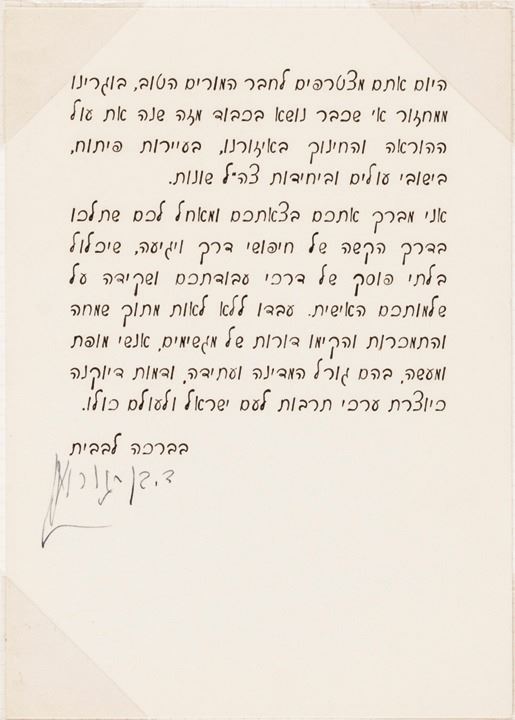 היום אתם מצטרפים לחבר המורים הטוב, בוגרינו
ממחזור א׳ שכבר נושא בכבוד מזה שנה את עול
ההוראה והחינוך באיזורנו, בעיירות פיתוח,
בישובי עולים וביחידות צה״ל שונות.
אני מברך אתכם בצאתכם ומאחל לכם שתלכו
בדרך הקשה של חיפושי דרך ויגיעה, שיכלול
בלתי פוסק של דרכי עבודתכם ושקידה על
שלמותכם האישית. עבדו ללא לאות מתוך שמחה
והתמכרות והקימו דורות של מגשימים, אנשי מופת
ומעשה, בהם גורל המדינה ועתידה, ודמות דיוקנה
כיוצרת ערכי תרבות לעם ישראל ולעולם כולו.
בברכה לבבית
ד. בן-גוריון